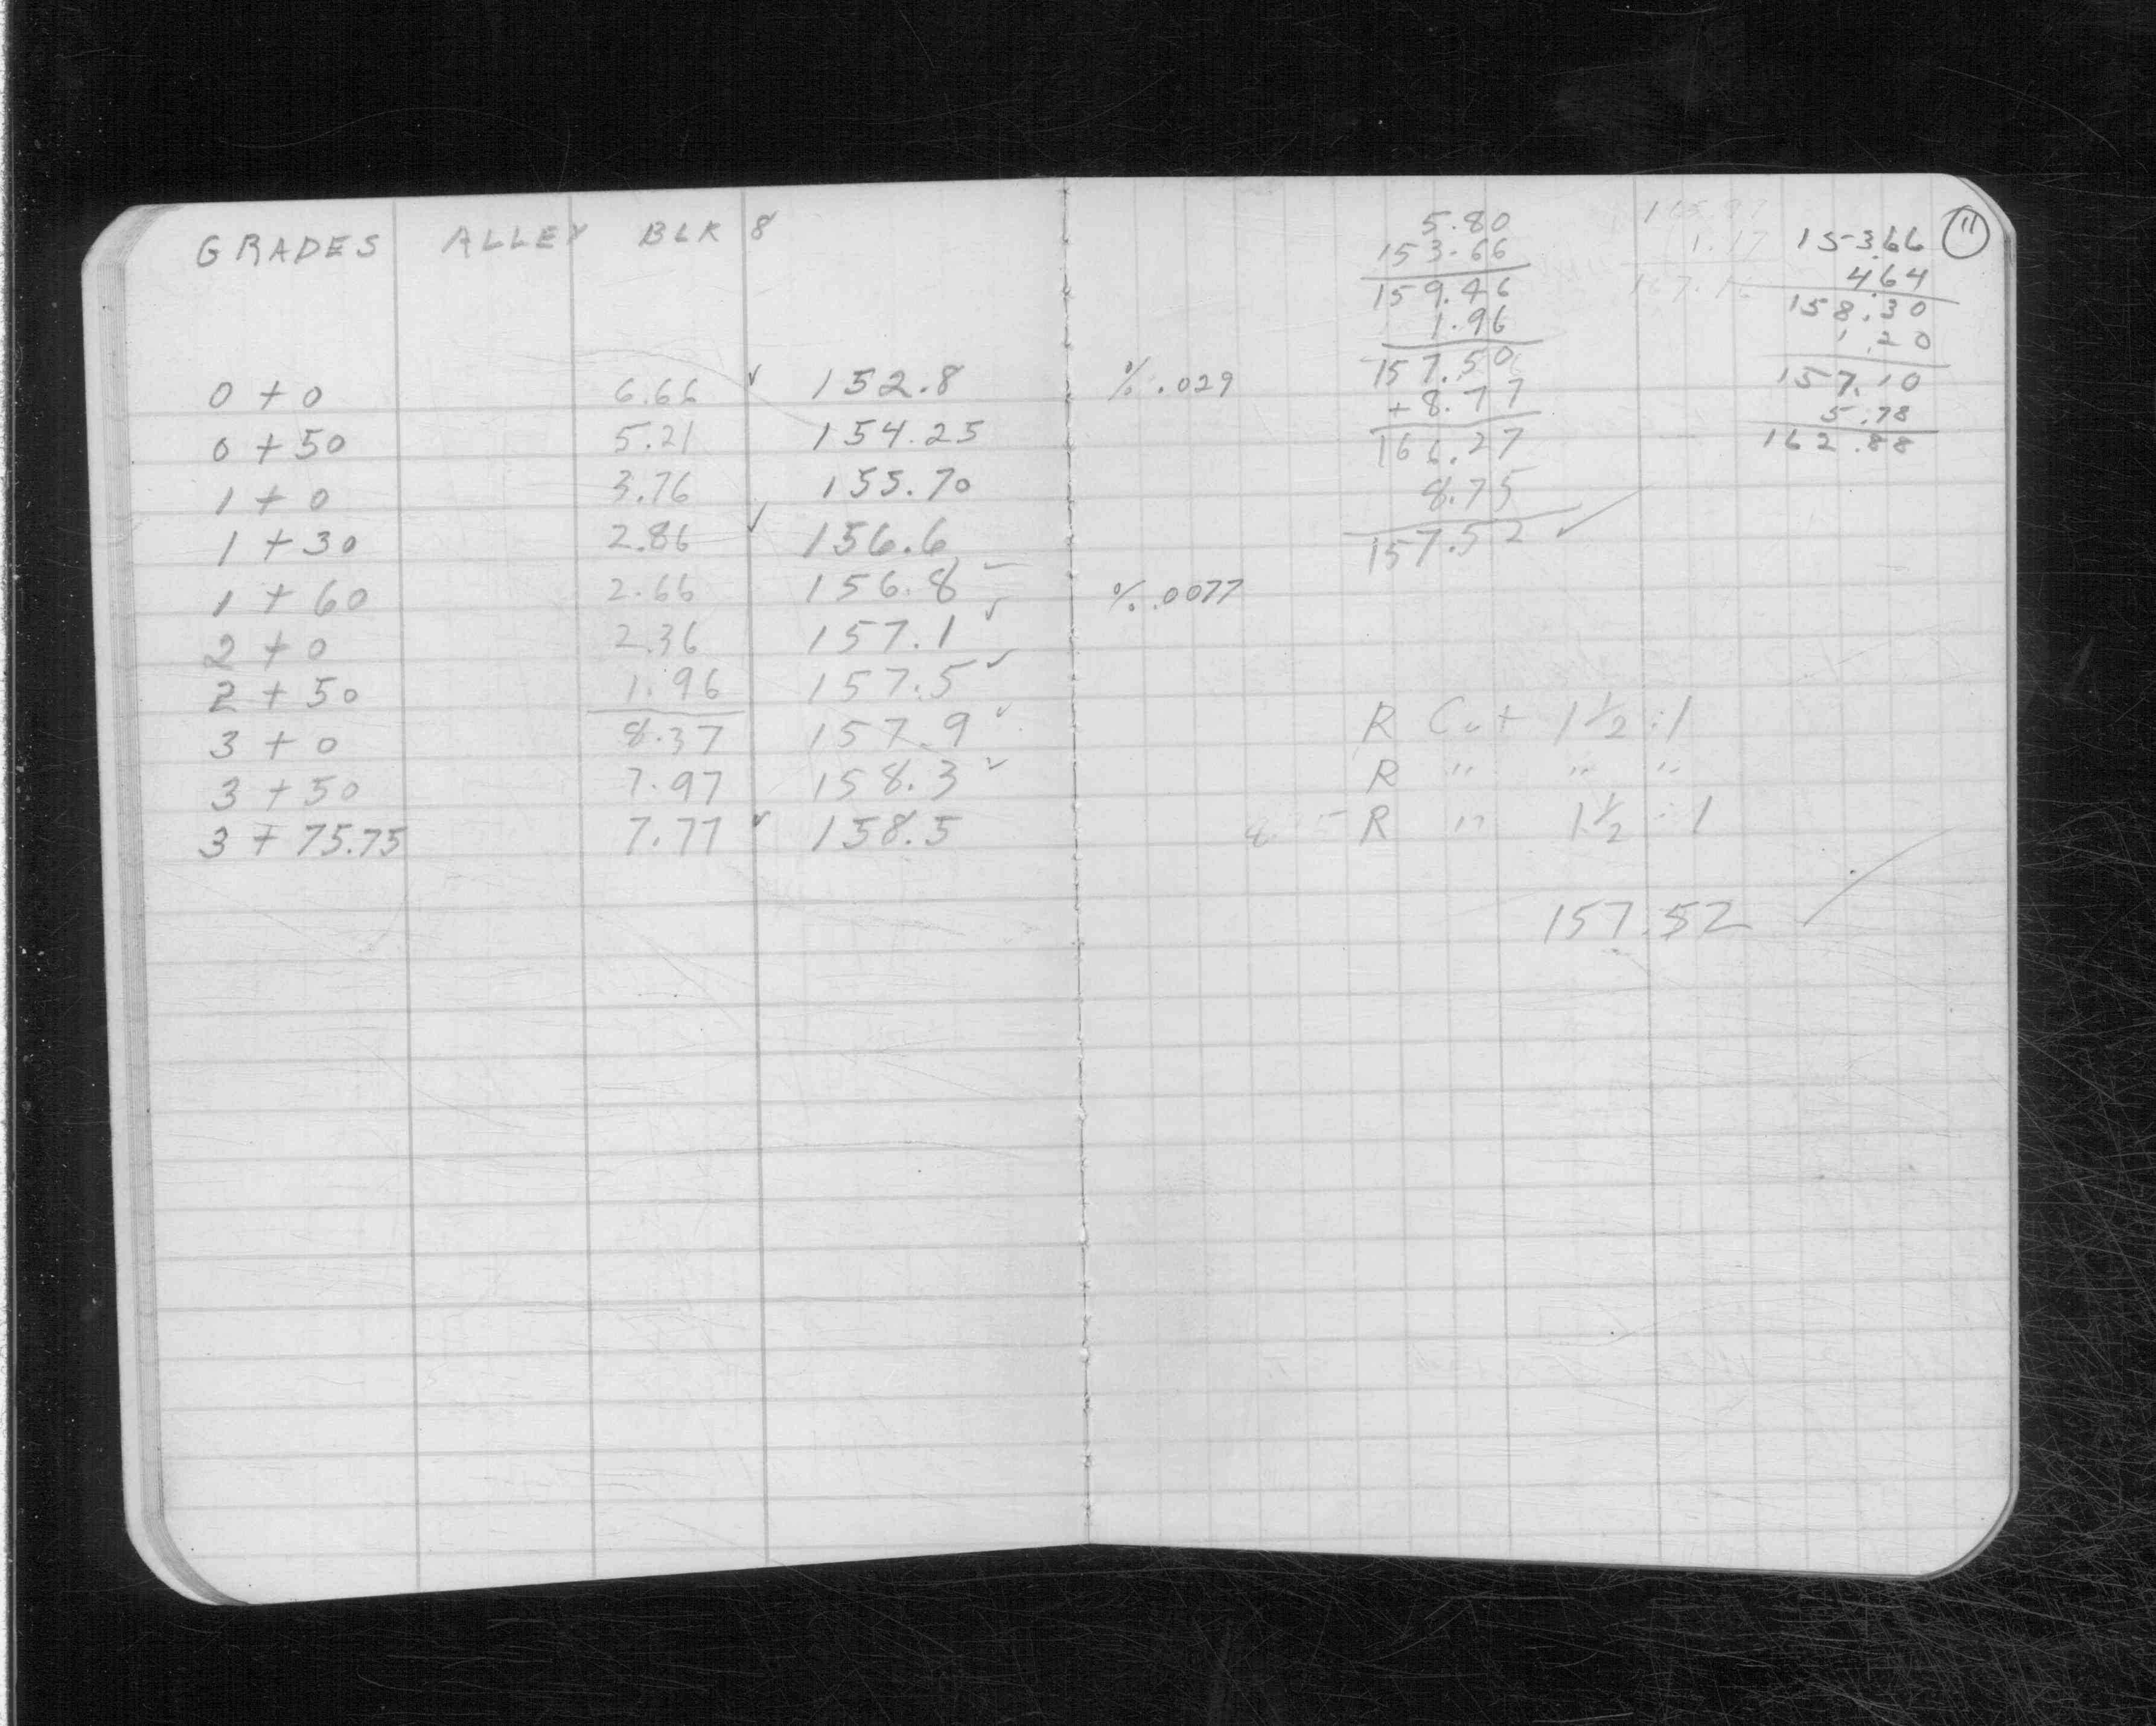 GRADES ALLEY BLK 8
0 + 0 6.66 ✓ 152.8
0 + 50 5.21 154.25
1 + 0 3.76 155.70
1 + 30 2.86 ✓ 156.6
1 + 60 2.66 156.8 ✓
2 + 0 2.36 157.1 ✓
2 + 50 1.96 157.5 ✓
3 + 0 8.37 157.9 ✓
3 + 50 7.97 158.3 ✓
3 + 75.75 7.77 ✓ 158.5
% .029
% .0077
5.80
153.66
159.46
1.96
157.50
+ 8.77
166.27
8.75
157.52 ✓
11
153.66
4.64
158.30
1.20
157.10
5.78
162.88
R Cut 1 1/2 : 1
R " " "
R " 1 1/2 : 1
157.52 ✓